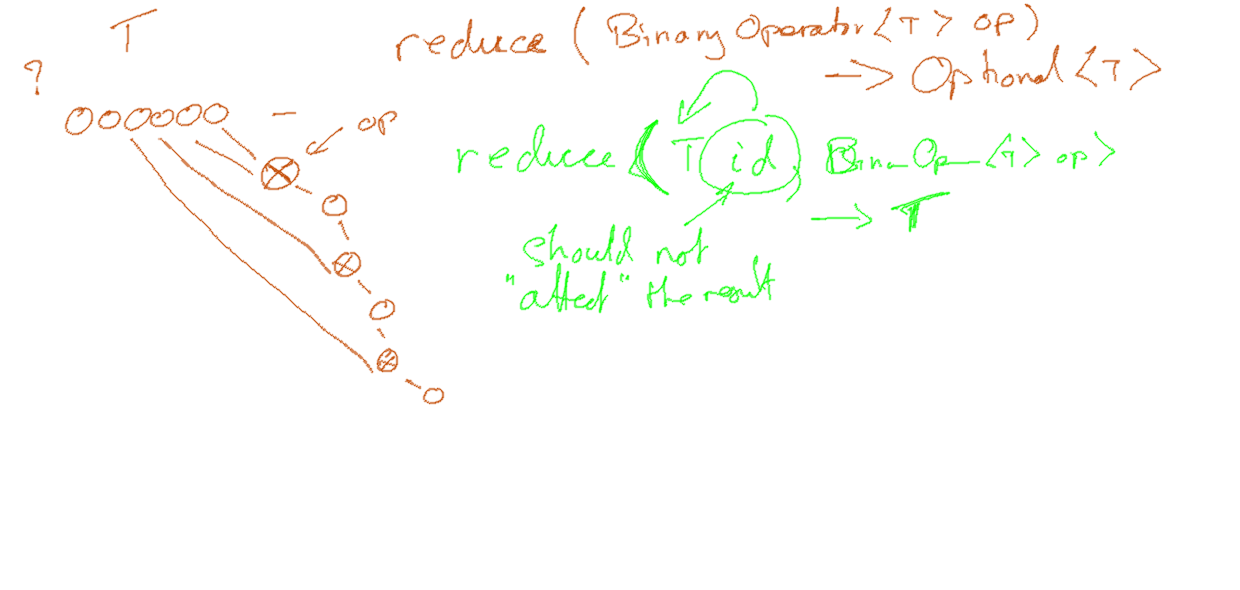 T
reduce ( Binary Operator <T> op)
?
-> Optional <T>
op
reduce ( T id) BinaOp <T> op>
-> T
should not
"affect" the result